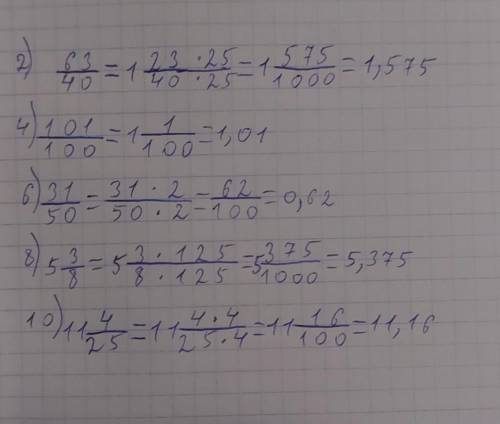 2) 63/40 = 1 23·25/40·25 = 1 575/1000 = 1,575
4) 101/100 = 1 1/100 = 1,01
6) 31/50 = 31·2/50·2 = 62/100 = 0,62
8) 5 3/8 = 5 3·125/8·125 = 5 375/1000 = 5,375
10) 11 4/25 = 11 4·4/25·4 = 11 16/100 = 11,16